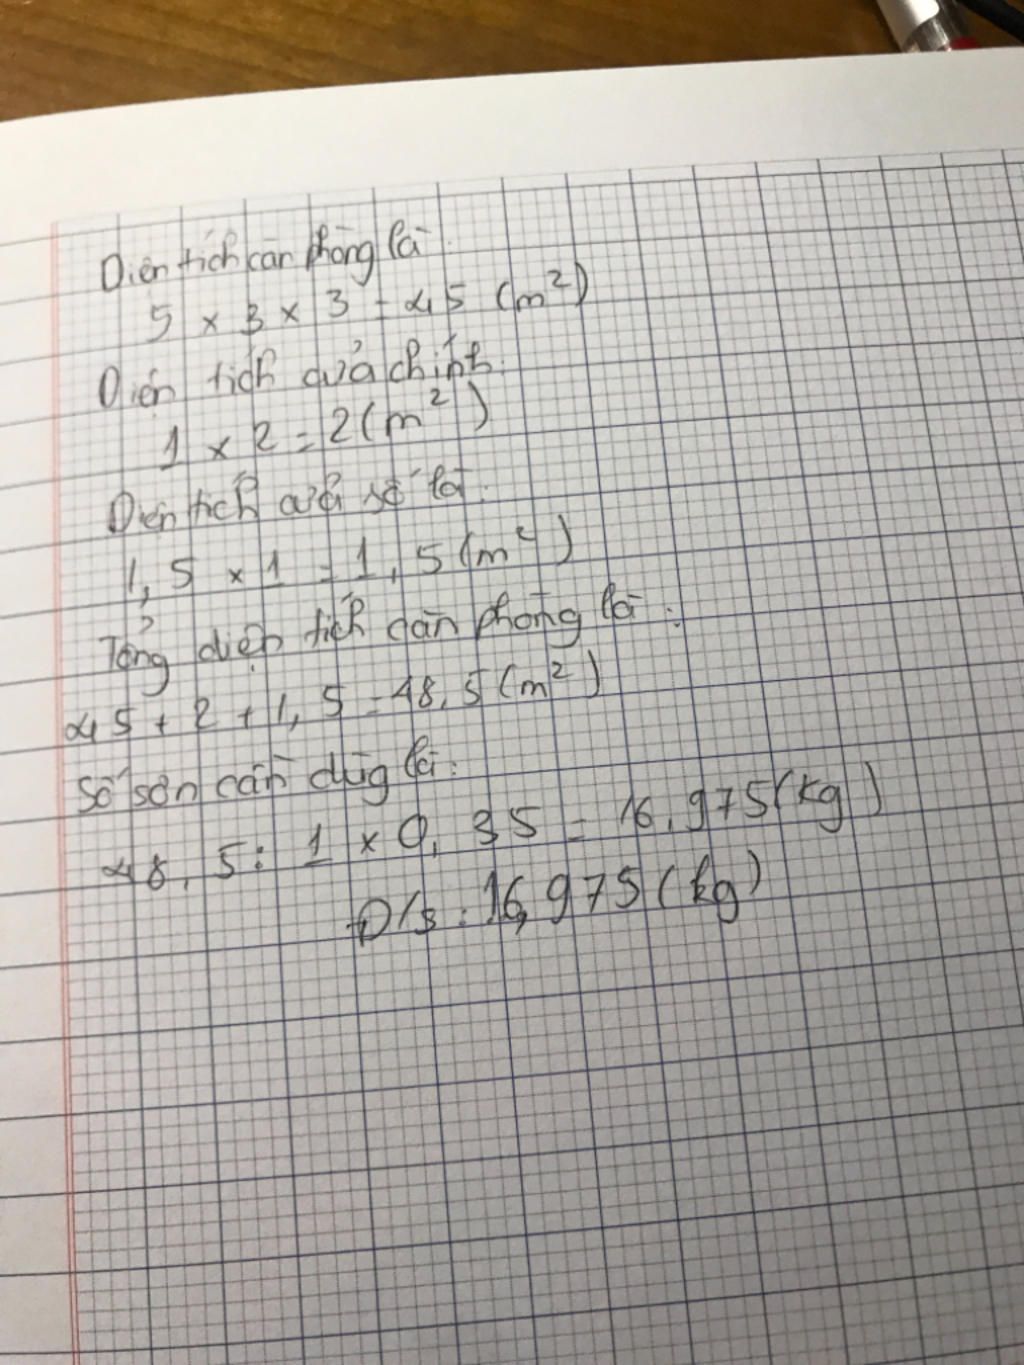 Diện tích căn phòng là
5 x 3 x 3 = 45 (m²)
Diện tích cửa chính:
1 x 2 = 2 (m²)
Diện tích cửa sổ là:
1,5 x 1 = 1,5 (m²)
Tổng diện tích căn phòng là:
45 + 2 + 1,5 = 48,5 (m²)
Số sơn cần dùg là:
48,5 : 1 x 0,35 = 16,975 (kg)
Đ/s : 16,975 (kg)